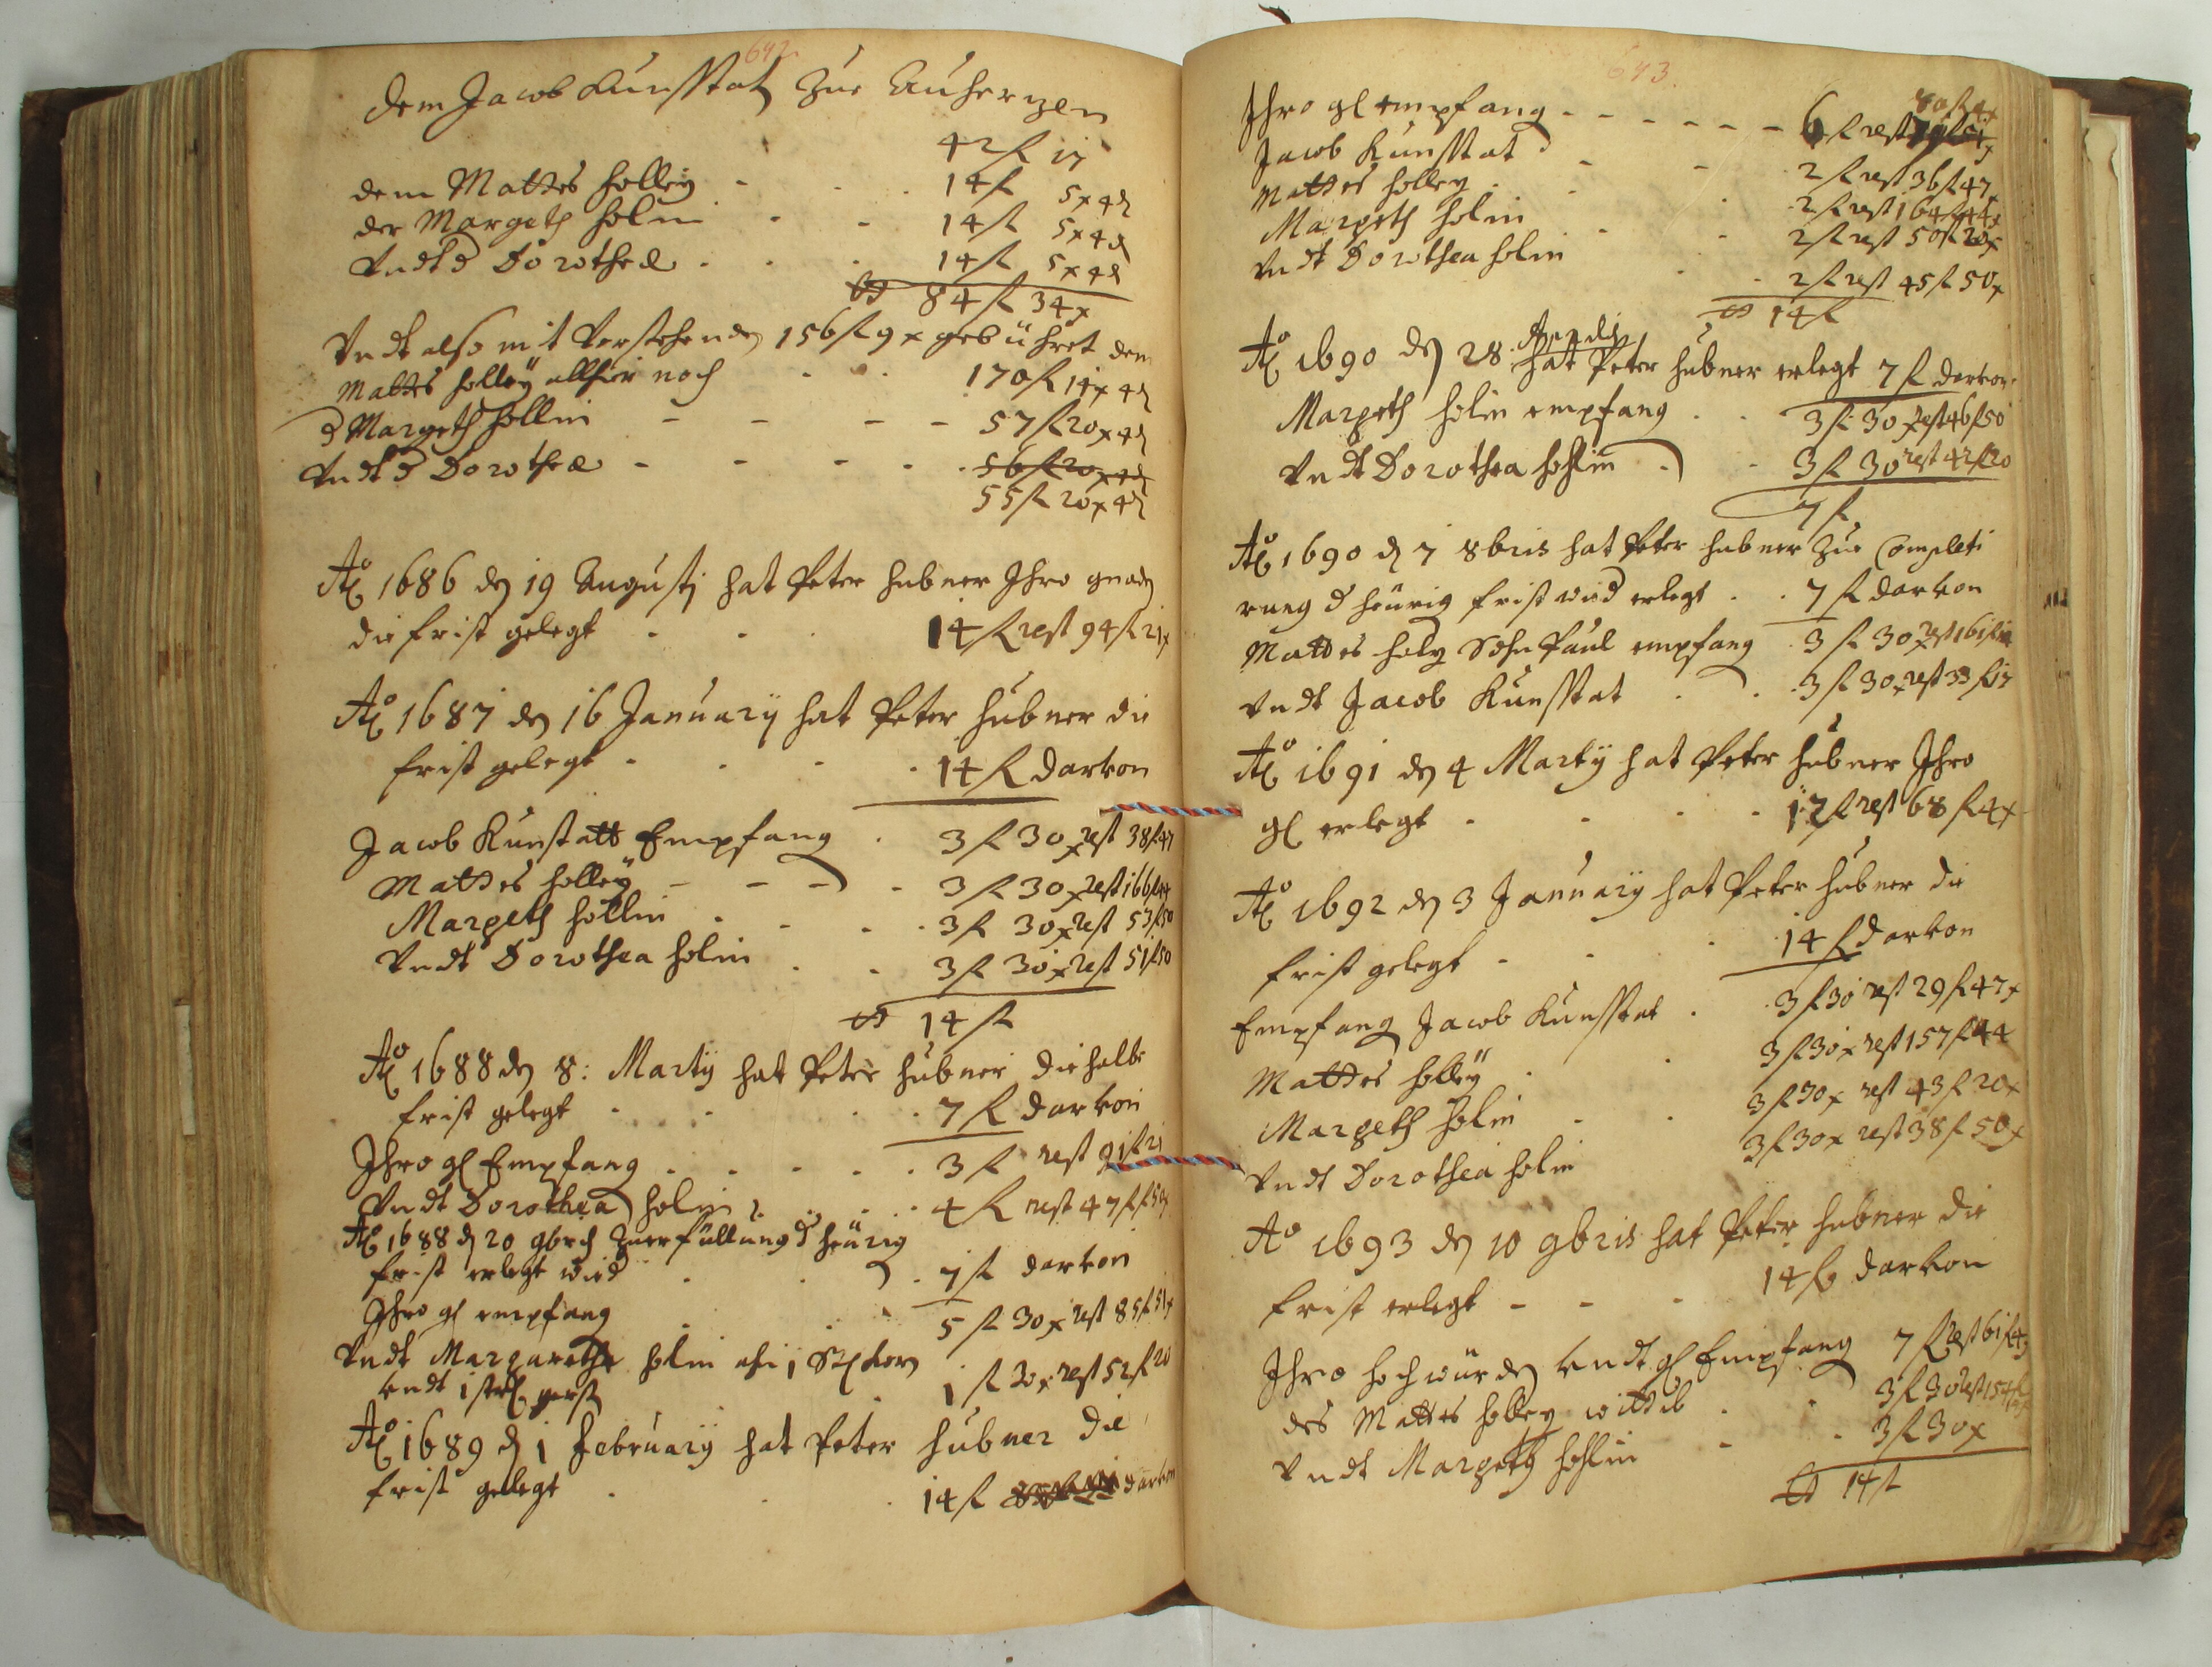 642
dem Jacob Kunsstat zue Auherzen
42 fl 17
dem Mattes holley - 14 fl 5 x 4 d
der Margeth holin - - 14 fl 5 x 4 d
Vndt d Dorothea . . 14 fl 5 x 4 d
84 fl 34 x
Vndt also mit Vorstehenden 156 fl 9 x gebühret dem
Mattes holleÿ allhier noch . . 170 fl 14 x 4 d
d Margeth hollin - - - - 57 fl 20 x 4 d
Vndt d Dorothea - - - . . 56 fl 20 x 4 d
55 fl 20 x 4 d
Ao 1686 den 19 Augusti hat Peter hubner Ihro gnaden
die frist gelegt . . . 14 fl rest 94 fl 21 x
Ao 1687 den 16 Januarÿ hat Peter hübner die
frist gelegt . . . . 14 fl darvon
Jacob Kunstatt Empfang . 3 fl 30 x rest 38 fl 47
Mattes holleÿ - - - - 3 fl 30 x rest 166 fl 44
Margeth hollin . . . . 3 fl 30 x rest 53 fl 50
Vndt Dorothea holin . . 3 fl 30 x rest 51 fl 50
14 fl
Ao 1688 den 8: Martÿ hat Peter hübner die halbe
frist gelegt . . . . 7 fl darvon
Ihro gl Empfang . . . . . 3 fl rest 91 fl 21
Vndt Dorothea holin . . . . 4 fl rest 47 fl 50
Ao 1688 d 20 9bris zuerfüllung d heürig
frist erlegt wird . . . 7 fl darvon
Ihro gl empfang . . . 5 fl 30 x rest 85 fl 51 x
Vndt Margaretha holin 1 Korn 1 fl 30 x rest 52 fl 20
vndt 1 gerst
Ao 1689 d 1 Februarÿ hat Peter hübner die
frist gelegt . . . 14 fl darvon
643
Ihro gl empfang - - - - - - 6 fl rest
Jacob Kunsstat - - 2 fl rest 36 fl 47
Mattes holley . . . 2 fl rest 164 fl 44 x
Margeth holin . . 2 fl rest 50 fl 20 x
Vndt Dorothea holin . . 2 fl rest 45 fl 50 x
14 fl
Ao 1690 den 28 Aprilis hat Peter hübner erlegt 7 fl darvon
Margeth holin empfang . . 3 fl 30 x rest 46 fl 50
Vndt Dorothea hohlin . . 3 fl 30 rest 42 fl 20
7 fl
Ao 1690 d 7 8bris hat Peter hubner zue Completi
rung d heürig frist wird erlegt . . 7 fl darvon
Mattes holy Sohn Paul empfang . 3 fl 30 x rest 161 fl
Vndt Jacob Kunsstat . . . 3 fl 30 x rest 33 fl 17
Ao 1691 den 4 Martÿ hat Peter hübner Ihro
gl erlegt . . . . 12 fl rest 68 fl 4 x
Ao 1692 den 3 Januarÿ hat Peter hübner die
frist gelegt . . . 14 fl darvon
Empfang Jacob Kunsstat . 3 fl 30 rest 29 fl 47 x
Mattes holleÿ . . 3 fl 30 x rest 157 fl 44
Margeth holin . . 3 fl 30 x rest 43 fl 20 x
Vndt Dorothea holin 3 fl 30 x rest 38 fl 50 x
Ao 1693 den 10 9bris hat Peter hubner die
frist erlegt - - - 14 fl darvon
Ihro hochwürden vndt gl Empfang 7 fl rest 61 fl 4 x
des Mattes holley wittib . . 3 fl 30 rest 154 fl
Vndt Margeth hohlin . . 3 fl 30 x
14 fl